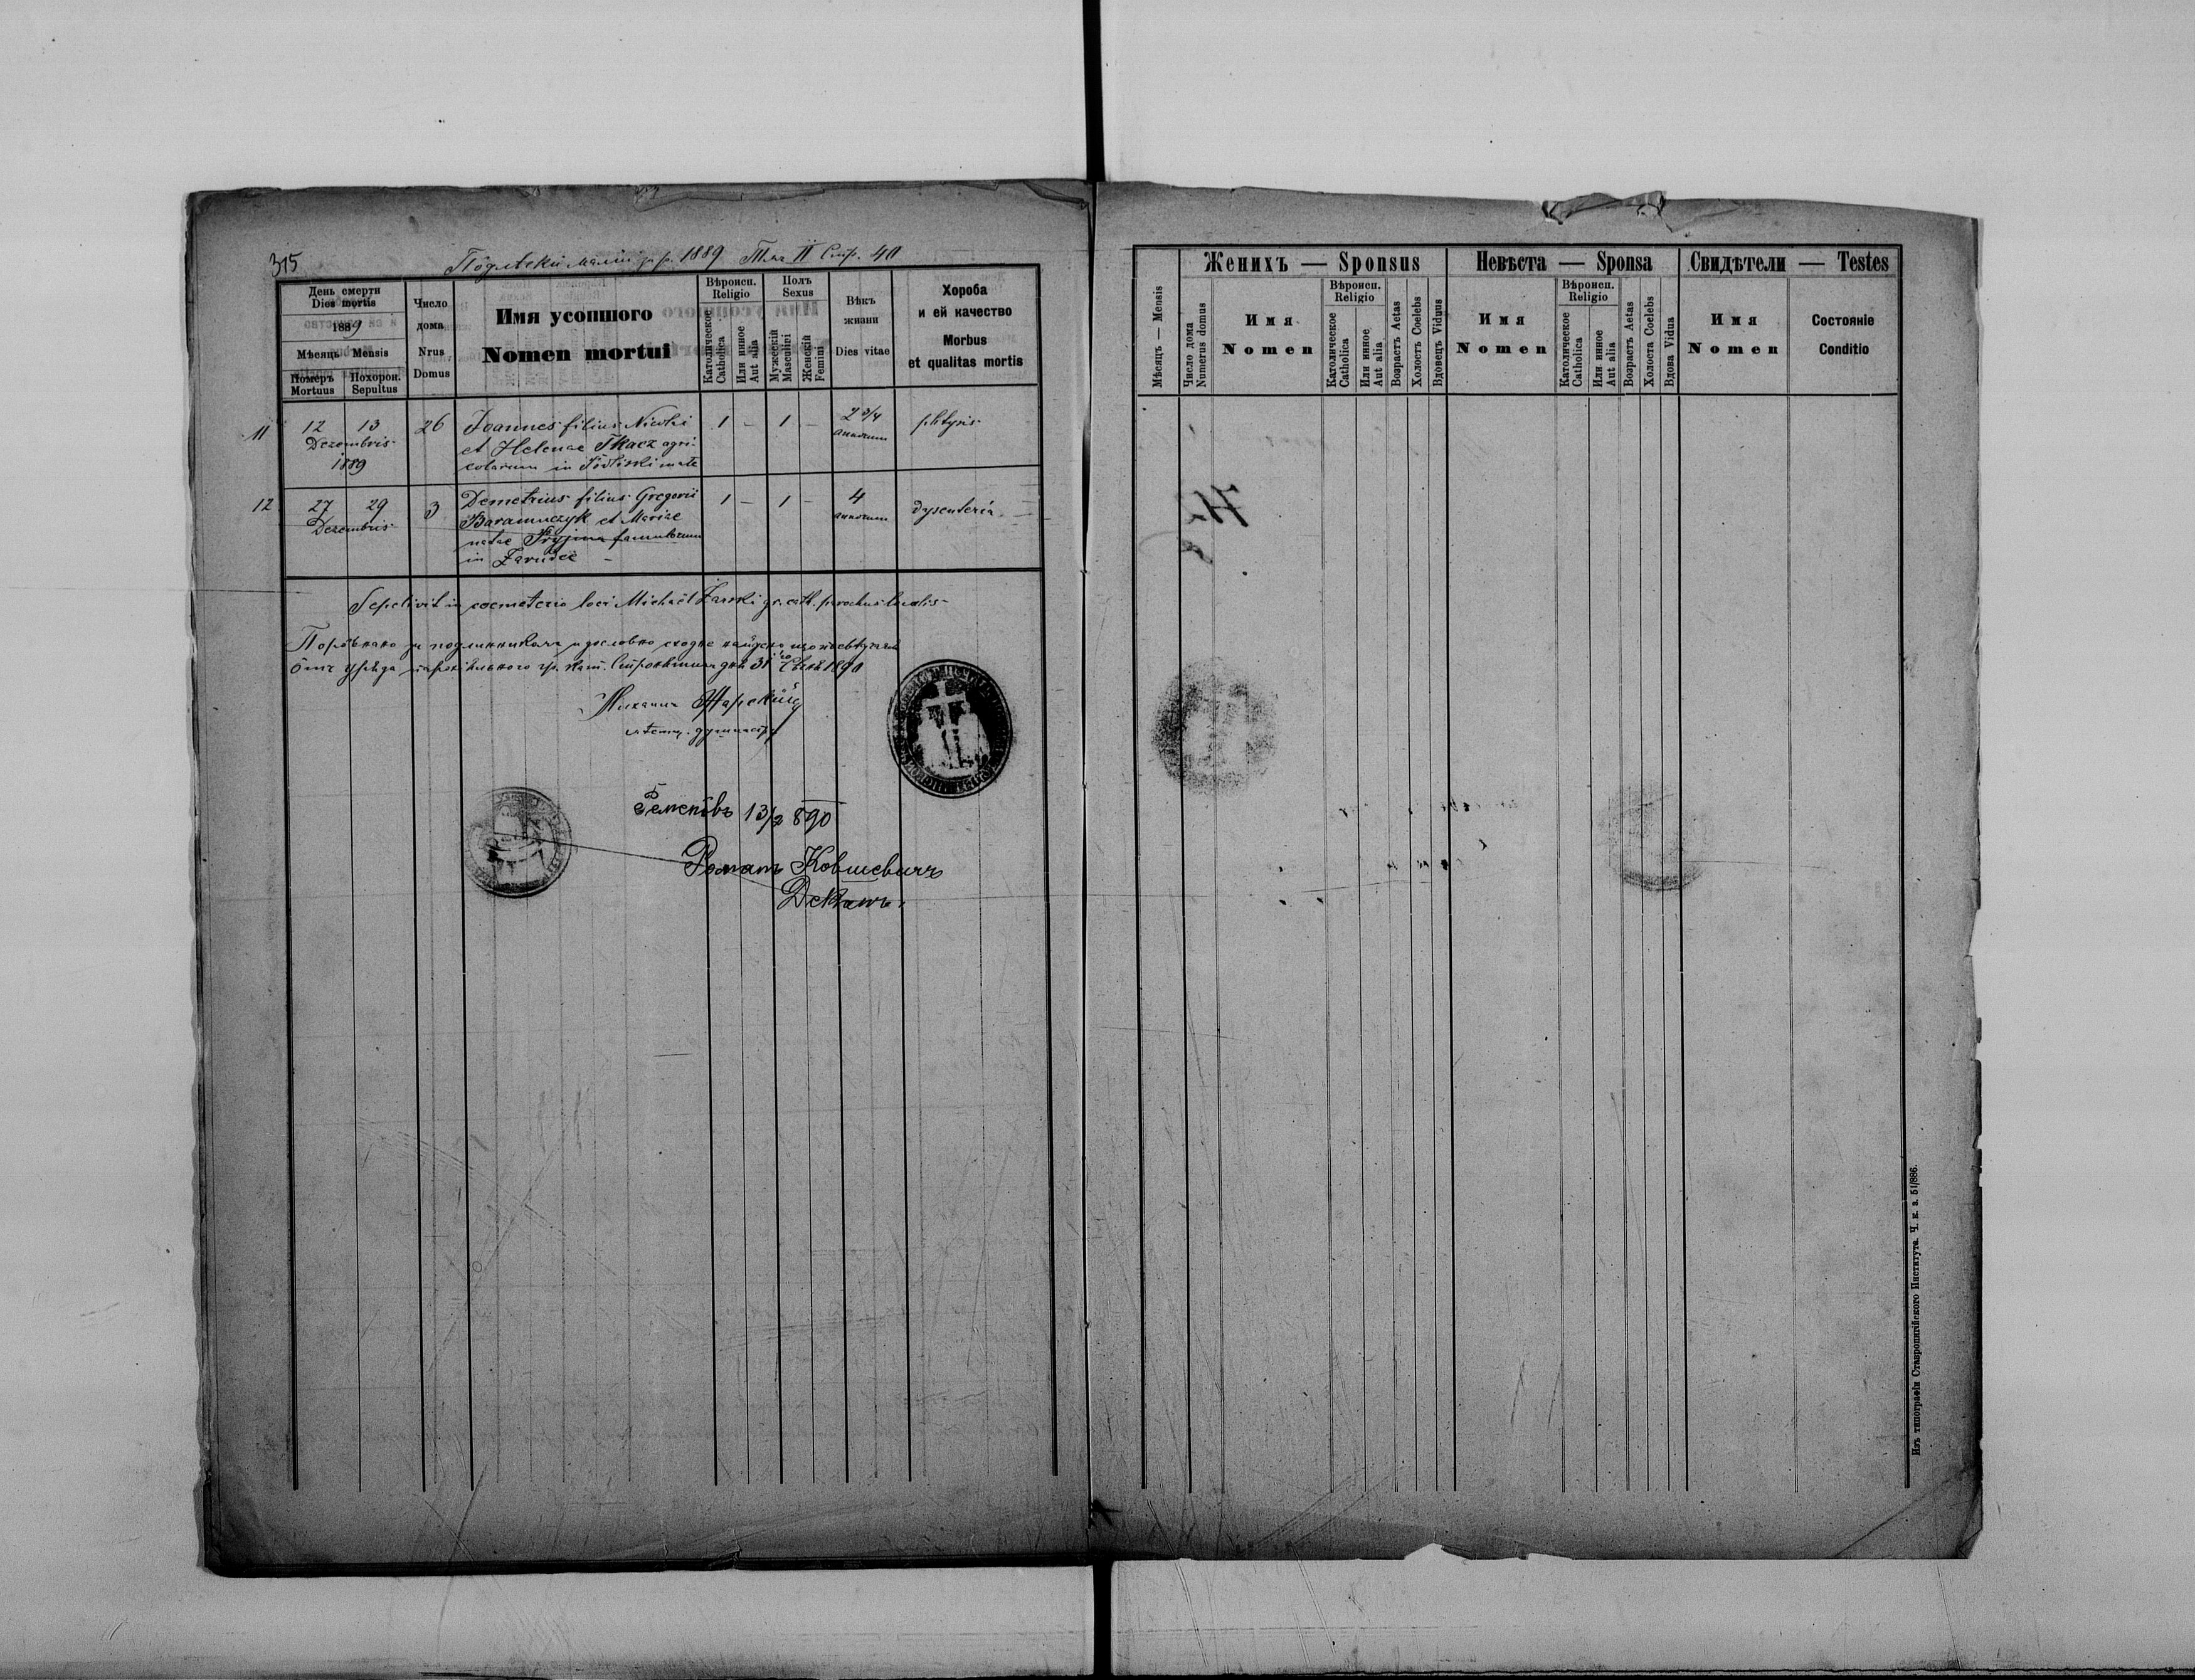 315
Подлѣски малій за р. 1889 Томъ II Стр. 40
День смерти
Dies mortis
1889
Мѣсяць Mensis
Померъ Mortuus
Похорон. Sepultus
Число дома
Nrus Domus
Имя усопшого
Nomen mortui
Вѣроисп.
Religio
Католическое
Catholica
Или инное
Aut alia
Полъ
Sexus
Мужескій
Masculini
Женскій
Femini
Вѣкъ жизни
Dies vitae
Хороба
и ей качество
Morbus
et qualitas mortis
11 12 13 26 Joannes filius Nicolai 1 – 1 – 2 3/4 phtysis
Dezembris et Helenae Tkacz agri- annorum
1889 colarum in Pödliski małe
12 27 29 3 Demetrius filius Gregorii 1 – 1 – 4 dysenteria
Dezembris Baramczyk et Mariae annorum
natae famulorum
in Zarudce –
Sepelivit in coemeterio loci Michaël Żarski gr. cath. parochus localis
Порôвнано за подлинникомъ и дословно сходне найдено що посвѣдчаєся
Ôтъ уряда парохіяльного гр. кат. дня 31 Сѣчня 1890
Михаилъ Жарскій
мѣстц. душпастырь
13/2 890
Романъ Ковшевичъ
Деканъ
Женихъ — Sponsus
Невѣста — Sponsa
Свидѣтели — Testes
Мѣсяцъ — Mensis
Число дома
Numerus domus
Имя
Nomen
Вѣроисп.
Religio
Католическое
Catholica
Или инное
Aut alia
Возрастъ Aetas
Холостъ Coelebs
Вдовецъ Viduus
Имя
Nomen
Вѣроисп.
Religio
Католическое
Catholica
Или инное
Aut alia
Возрастъ Aetas
Холоста Coelebs
Вдова Vidua
Имя
Nomen
Состояніе
Conditio
Изъ типографіи Ставропигійского Института. Ч. к. з. 51/886.